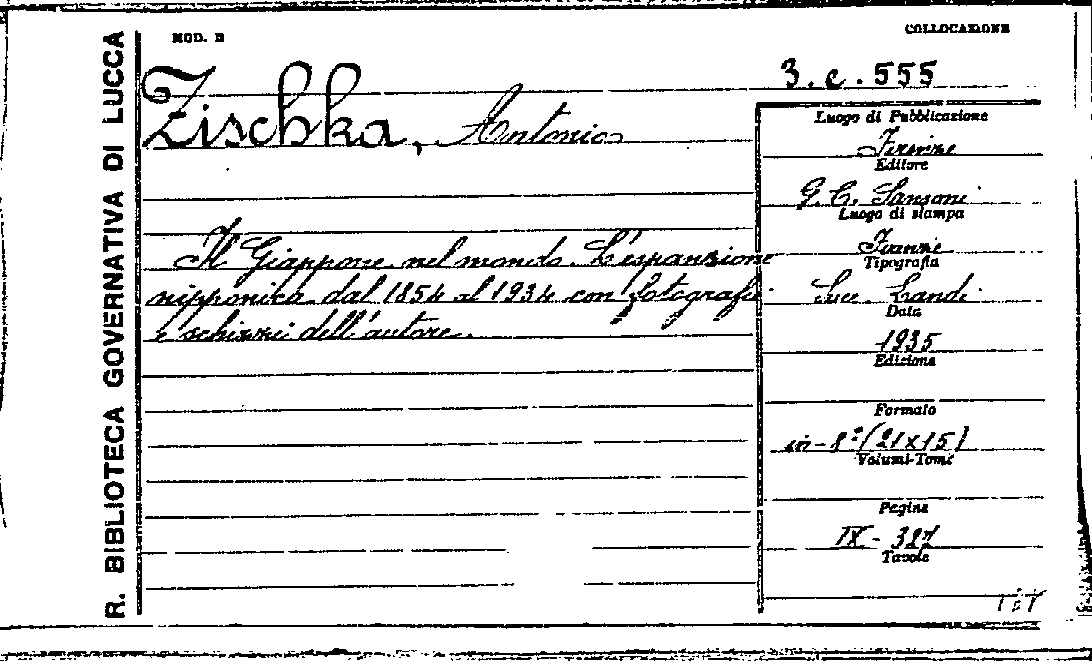 R. BIBLIOTECA GOVERNATIVA DI LUCCA
MOD. B
COLLOCAZIONE
3. c. 555
Zischka, Antonio
Il Giappone nel mondo. L'espansione
nipponica dal 1854 al 1934 con fotografie
e schizzi dell'autore.
Luogo di Pubblicazione
Firenze
Editore
G. C. Sansoni
Luogo di stampa
Firenze
Tipografia
Succ. Landi
Data
1935
Edizione
Formato
in-8° (21x15)
Volumi-Tomi
Pagine
IX - 327
Tavole